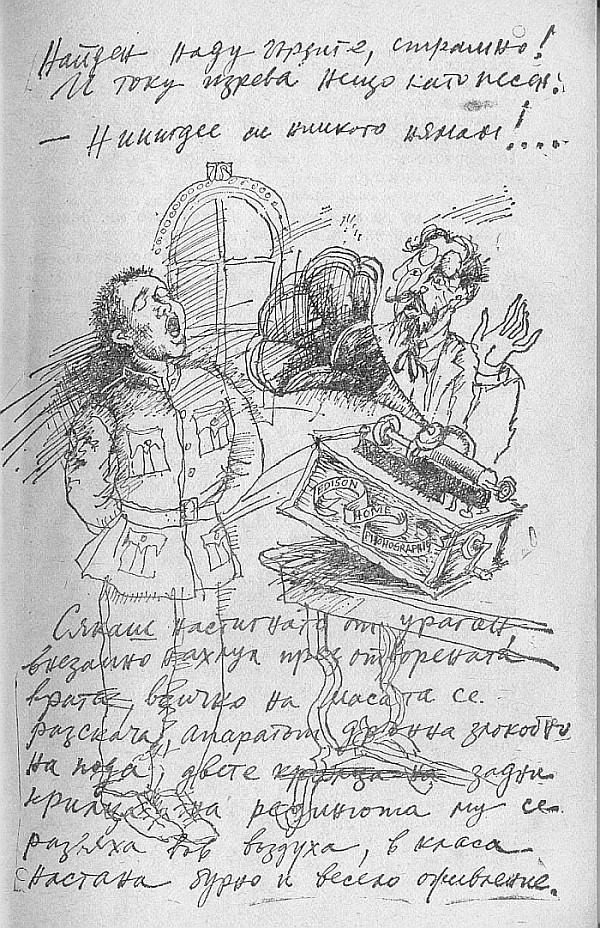 Найден наду гърдите, страшно!
И току изрева нещо като песен:
— Ниигдее си никого нямам!....
EDISON
HOME
PHONOGRAPH
Сякаш настигната от ураган,
внезапно нахлул през отворената
врата, всичко на масата се
разскача, апаратът дрънна злокобно
на пода, двете крилца на задни
крилца на рединготa му се
развяха във въздуха, в класа
настана бурно и весело оживление.